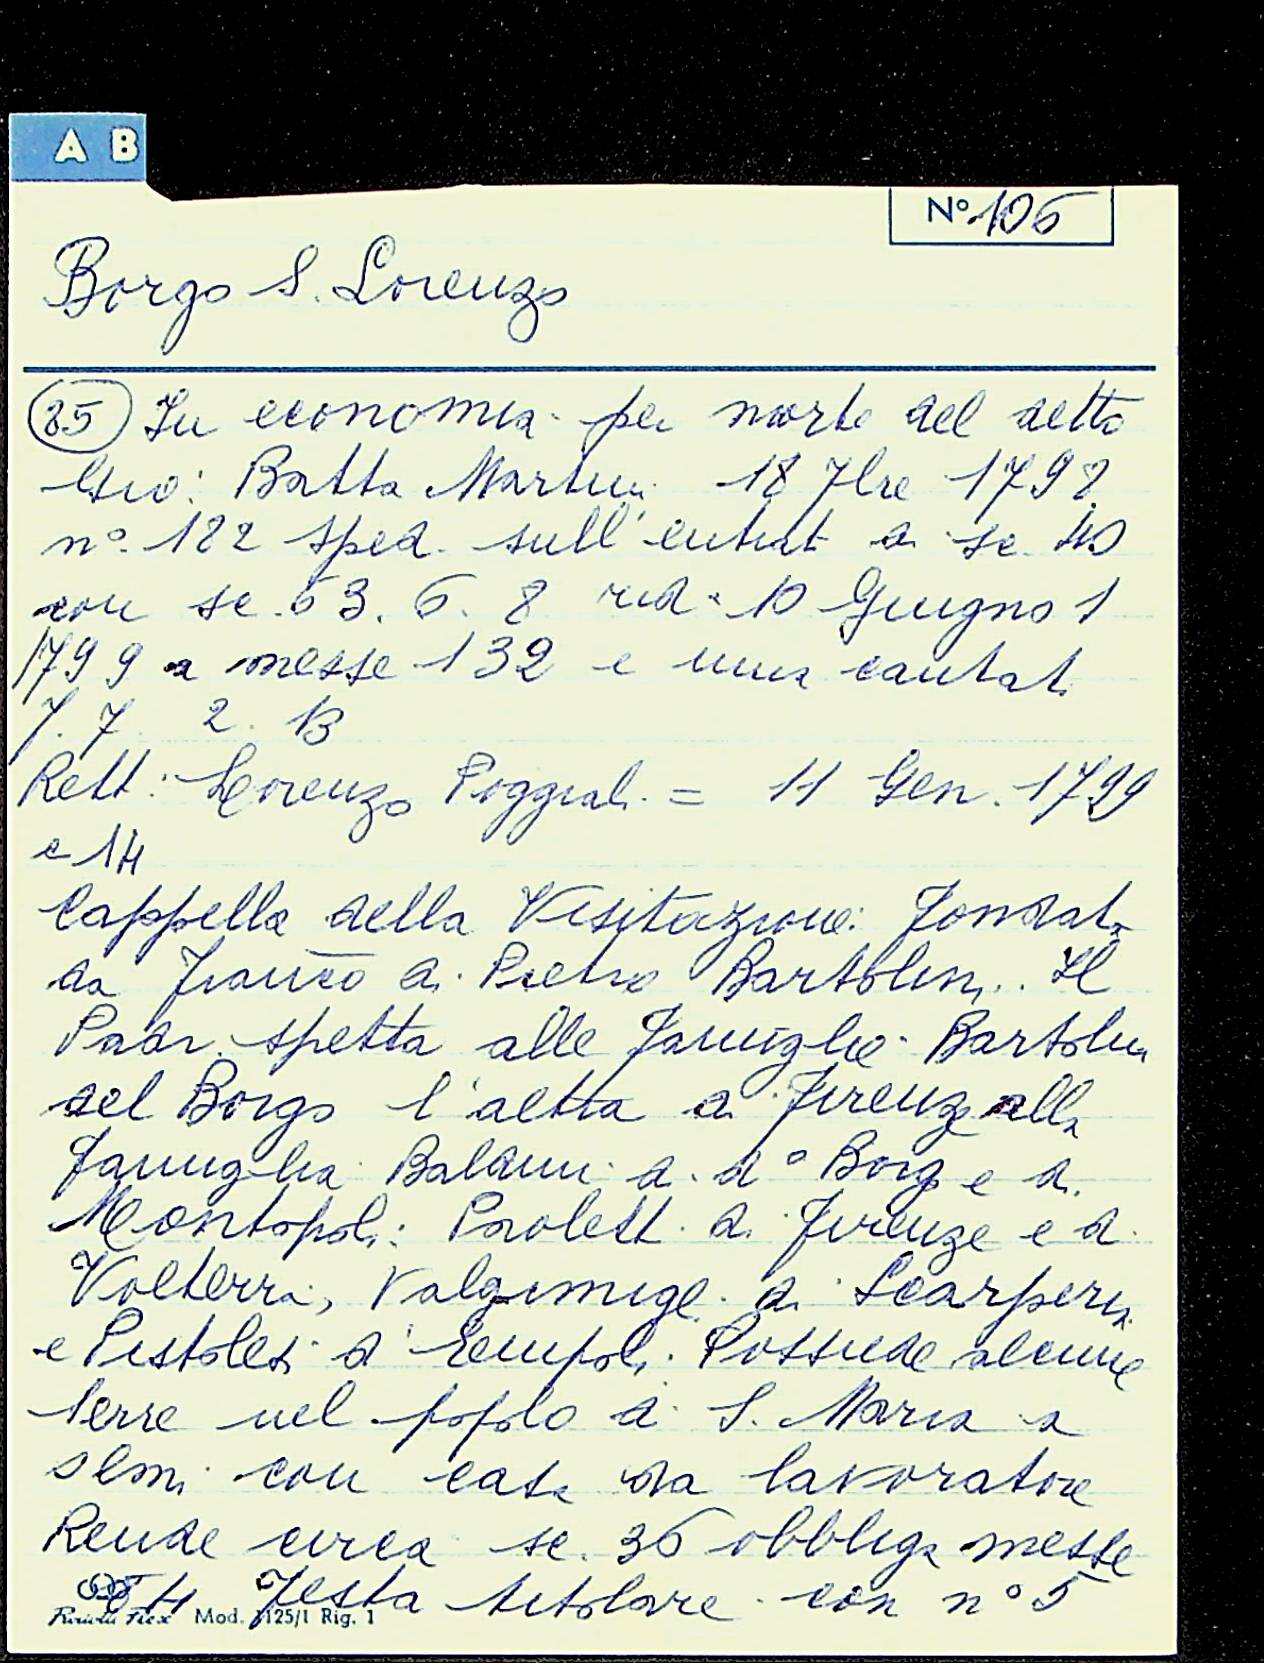 A B
N° 106
Borgo S. Lorenzo
85 In economia per morte del detto
Gio: Batta Martini 18 7bre 1798
n° 182 sped. sull'entrat di sc. 40
con sc. 63. 6. 8 rid. 10 Giugno 1
1799 a messe 132 e una cantat.
7. 7 2. 13
Rett: Lorenzo Poggiali = 11 Gen. 1799
e 14
Cappella della Visitazione: Fondata
da Franco di Pietro Bartolini. Il
Padr. spetta alle Famiglie Bartolini
del Borgo l'altra di Firenze alla
famiglia Baldini di do Borgo e di
Montopoli: Paoletti di Firenze e di
Volterra, Valgimigli di Scarperia
e Pistolesi d'Empoli. Possiede alcune
terre nel popolo di S. Maria a
con casa da lavoratore
Rende circa sc. 36 obbligo messe
4 Festa titolare con n° 5
Mod. 1125/1 Rig. 1